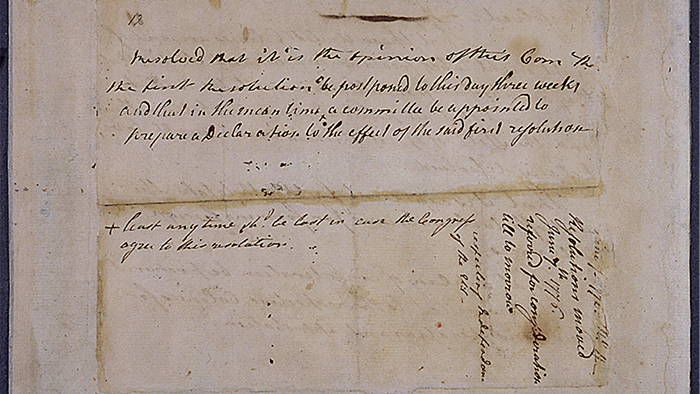 Resolved that it is the opinion of this Com. that
the first Resolution be postponed to this day three weeks
and that in the mean time + a committee be appointed to
prepare a Declaration to the effect of the said first resolution
+ least any time shd. be lost in case the Congress
agree to this resolution.
respecting Independence
of the Cols.
Resolutions moved
June 7th 1776.
refered for consideration
till to morrow